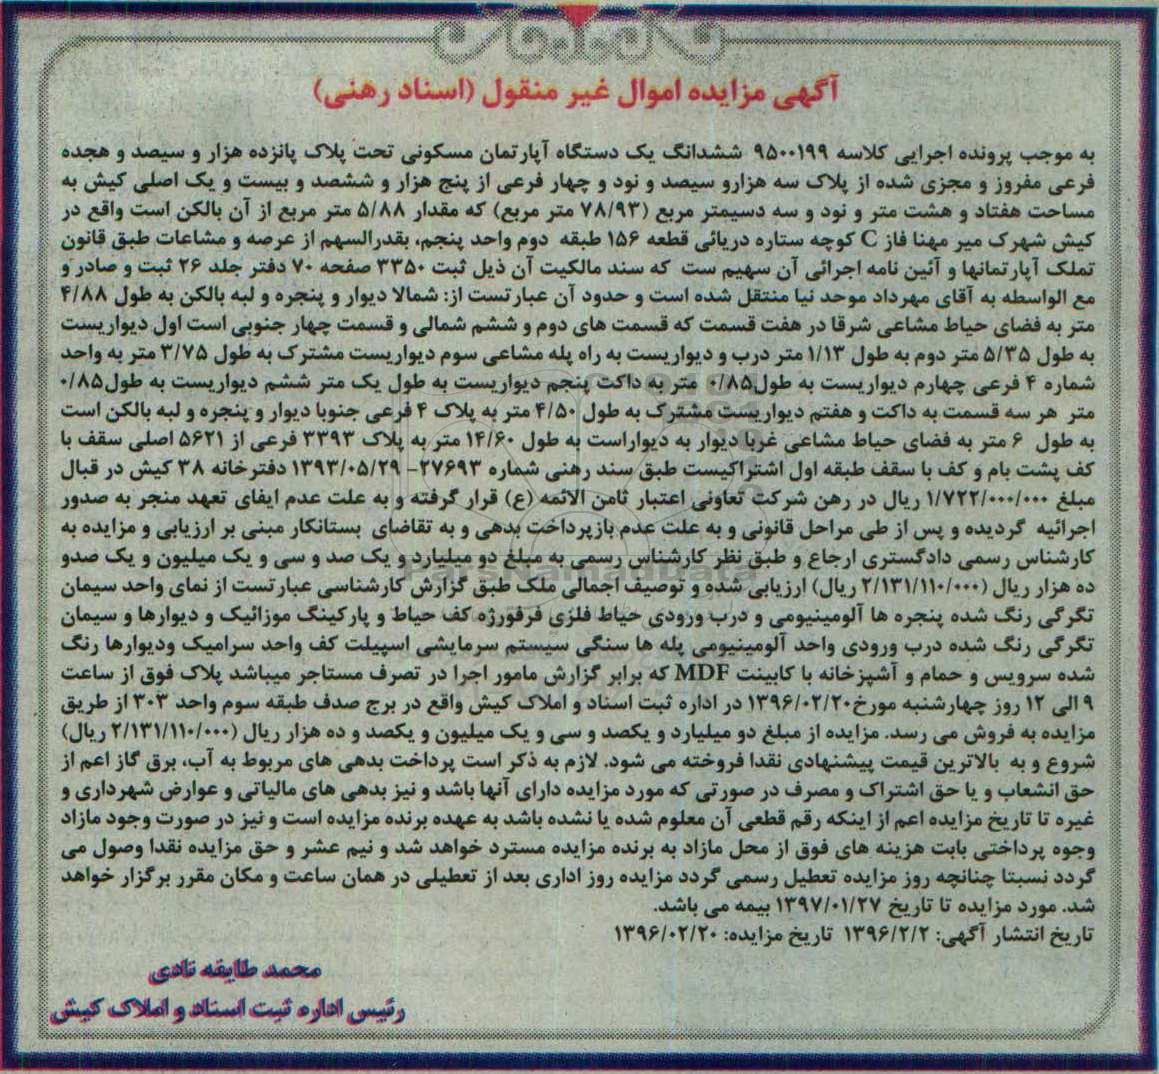 آگهی مزایده اموال غیر منقول (اسناد رهنی)
به موجب پرونده اجرایی کلاسه ۹۵۰۰۱۹۹ ششدانگ یک دستگاه آپارتمان مسکونی تحت پلاک پانزده هزار و سیصد و هجده
فرعی مفروز و مجزی شده از پلاک سه هزارو سیصد و نود و چهار فرعی از پنج هزار و ششصد و بیست و یک اصلی کیش به
مساحت هفتاد و هشت متر و نود و سه دسیمتر مربع (۷۸/۹۳ متر مربع) که مقدار ۵/۸۸ متر مربع از آن بالکن است واقع در
کیش شهرک میر مهنا فاز C کوچه ستاره دریائی قطعه ۱۵۶ طبقه دوم واحد پنجم، بقدرالسهم از عرصه و مشاعات طبق قانون
تملک آپارتمانها و آئین نامه اجرائی آن سهیم ست که سند مالکیت آن ذیل ثبت ۳۳۵۰ صفحه ۷۰ دفتر جلد ۲۶ ثبت و صادر و
مع الواسطه به آقای مهرداد موحد نیا منتقل شده است و حدود آن عبارتست از: شمالا دیوار و پنجره و لبه بالکن به طول ۴/۸۸
متر به فضای حیاط مشاعی شرقا در هفت قسمت که قسمت های دوم و ششم شمالی و قسمت چهار جنوبی است اول دیواریست
به طول ۵/۳۵ متر دوم به طول ۱/۱۳ متر درب و دیواریست به راه پله مشاعی سوم دیواریست مشترک به طول ۳/۷۵ متر به واحد
شماره ۴ فرعی چهارم دیواریست به طول۰/۸۵ متر به داکت پنجم دیواریست به طول یک متر ششم دیواریست به طول۰/۸۵
متر هر سه قسمت به داکت و هفتم دیواریست مشترک به طول ۴/۵۰ متر به پلاک ۴ فرعی جنوبا دیوار و پنجره و لبه بالکن است
به طول ۶ متر به فضای حیاط مشاعی غربا دیوار به دیواراست به طول ۱۴/۶۰ متر به پلاک ۳۳۹۳ فرعی از ۵۶۲۱ اصلی سقف با
کف پشت بام و کف با سقف طبقه اول اشتراکیست طبق سند رهنی شماره ۲۷۶۹۳- ۱۳۹۳/۰۵/۲۹ دفترخانه ۳۸ کیش در قبال
مبلغ ۱/۷۲۲/۰۰۰/۰۰۰ ریال در رهن شرکت تعاونی اعتبار ثامن الائمه (ع) قرار گرفته و به علت عدم ایفای تعهد منجر به صدور
اجرائیه گردیده و پس از طی مراحل قانونی و به علت عدم بازپرداخت بدهی و به تقاضای بستانکار مبنی بر ارزیابی و مزایده به
کارشناس رسمی دادگستری ارجاع و طبق نظر کارشناس رسمی به مبلغ دو میلیارد و یک صد و سی و یک میلیون و یک صدو
ده هزار ریال (۲/۱۳۱/۱۱۰/۰۰۰ ریال) ارزیابی شده و توصیف اجمالی ملک طبق گزارش کارشناسی عبارتست از نمای واحد سیمان
تگرگی رنگ شده پنجره ها آلومینیومی و درب ورودی حیاط فلزی فرفورژه کف حیاط و پارکینگ موزائیک و دیوارها و سیمان
تگرگی رنگ شده درب ورودی واحد آلومینیومی پله ها سنگی سیستم سرمایشی اسپیلت کف واحد سرامیک ودیوارها رنگ
شده سرویس و حمام و آشپزخانه با کابینت MDF که برابر گزارش مامور اجرا در تصرف مستاجر میباشد پلاک فوق از ساعت
۹ الی ۱۲ روز چهارشنبه مورخ۱۳۹۶/۰۲/۲۰ در اداره ثبت اسناد و املاک کیش واقع در برج صدف طبقه سوم واحد ۳۰۳ از طریق
مزایده به فروش می رسد. مزایده از مبلغ دو میلیارد و یکصد و سی و یک میلیون و یکصد و ده هزار ریال (۲/۱۳۱/۱۱۰/۰۰۰ ریال)
شروع و به بالاترین قیمت پیشنهادی نقدا فروخته می شود. لازم به ذکر است پرداخت بدهی های مربوط به آب، برق گاز اعم از
حق انشعاب و یا حق اشتراک و مصرف در صورتی که مورد مزایده دارای آنها باشد و نیز بدهی های مالیاتی و عوارض شهرداری و
غیره تا تاریخ مزایده اعم از اینکه رقم قطعی آن معلوم شده یا نشده باشد به عهده برنده مزایده است و نیز در صورت وجود مازاد
وجوه پرداختی بابت هزینه های فوق از محل مازاد به برنده مزایده مسترد خواهد شد و نیم عشر و حق مزایده نقدا وصول می
گردد نسبتا چنانچه روز مزایده تعطیل رسمی گردد مزایده روز اداری بعد از تعطیلی در همان ساعت و مکان مقرر برگزار خواهد
شد. مورد مزایده تا تاریخ ۱۳۹۷/۰۱/۲۷ بیمه می باشد.
تاریخ انتشار آگهی: ۱۳۹۶/۲/۲ تاریخ مزایده: ۱۳۹۶/۰۲/۲۰
محمد طایفه نادی
رئیس اداره ثبت اسناد و املاک کیش